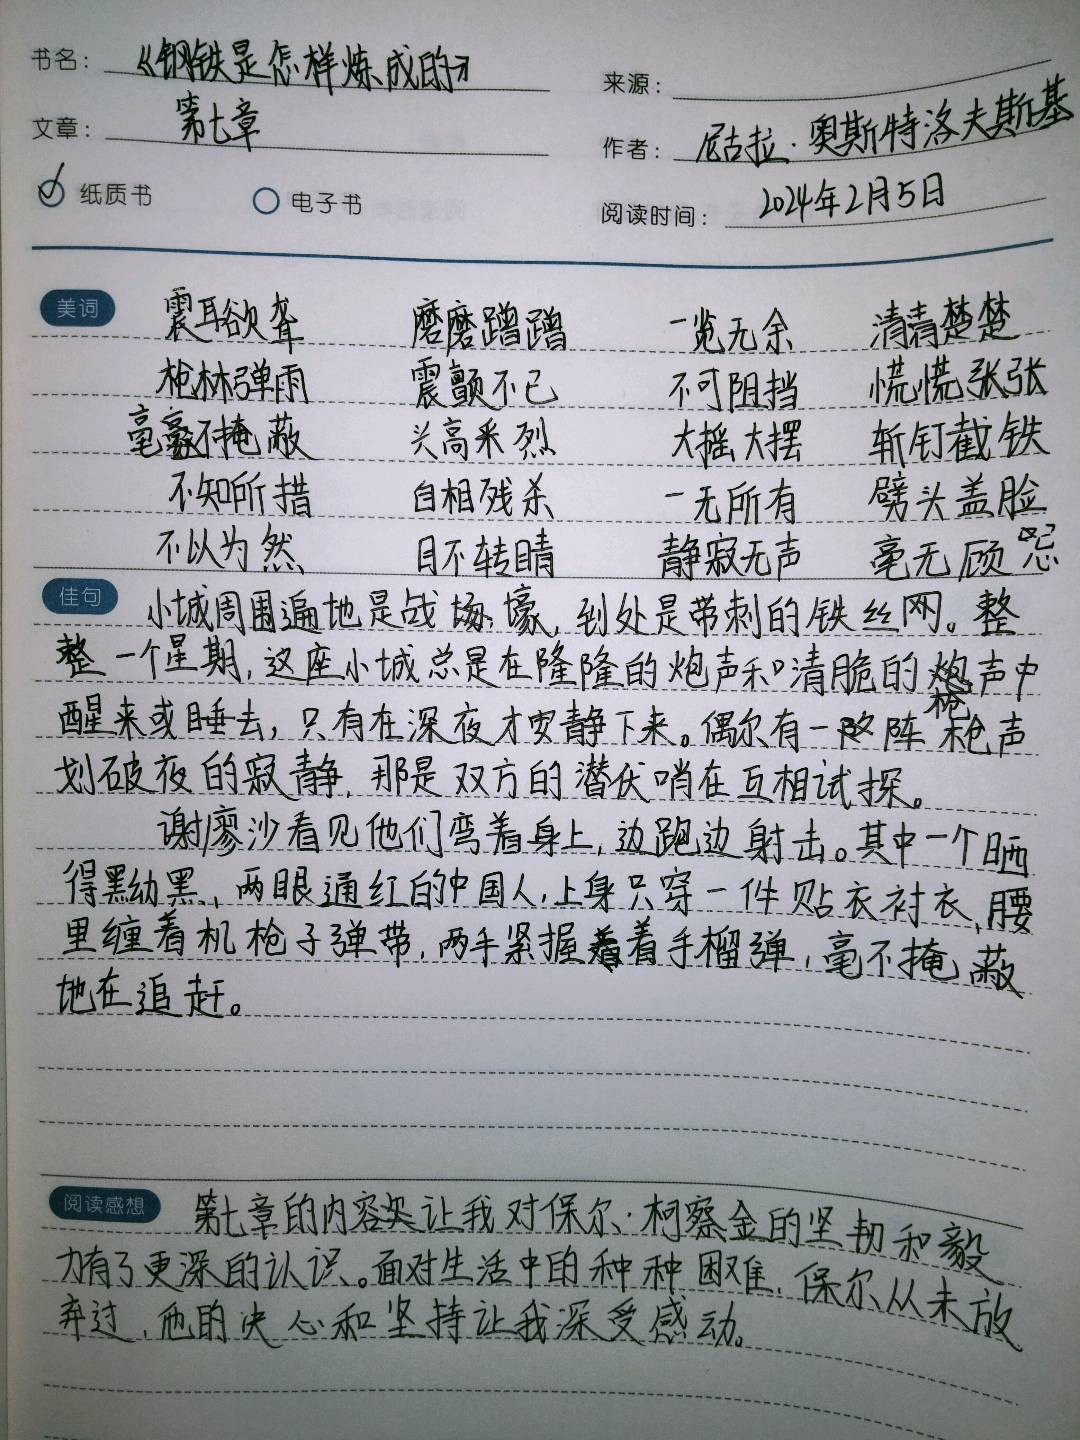 书名： 《钢铁是怎样炼成的》
来源：
文章： 第七章
作者： 尼古拉·奥斯特洛夫斯基
纸质书 电子书
阅读时间： 2024年2月5日
美词 震耳欲聋 磨磨蹭蹭 一览无余 清清楚楚
枪林弹雨 震颤不已 不可阻挡 慌慌张张
毫不掩蔽 兴高采烈 大摇大摆 斩钉截铁
不知所措 自相残杀 一无所有 劈头盖脸
不以为然 目不转睛 静寂无声 毫无顾忌
佳句 小城周围遍地是战壕，到处是带刺的铁丝网。整
整一个星期，这座小城总是在隆隆的炮声和清脆的枪声中
醒来或睡去，只有在深夜才安静下来。偶尔有一阵枪声
划破夜的寂静，那是双方的潜伏哨在互相试探。
谢廖沙看见他们弯着身上，边跑边射击。其中一个晒
得黑黝黑、两眼通红的中国人，上身只穿一件贴衣衬衣，腰
里缠着机枪子弹带，两手紧握着手榴弹，毫不掩蔽
地在追赶。
阅读感想 第七章的内容让我对保尔·柯察金的坚韧和毅
力有了更深的认识。面对生活中的种种困难，保尔从未放
弃过，他的决心和坚持让我深受感动。